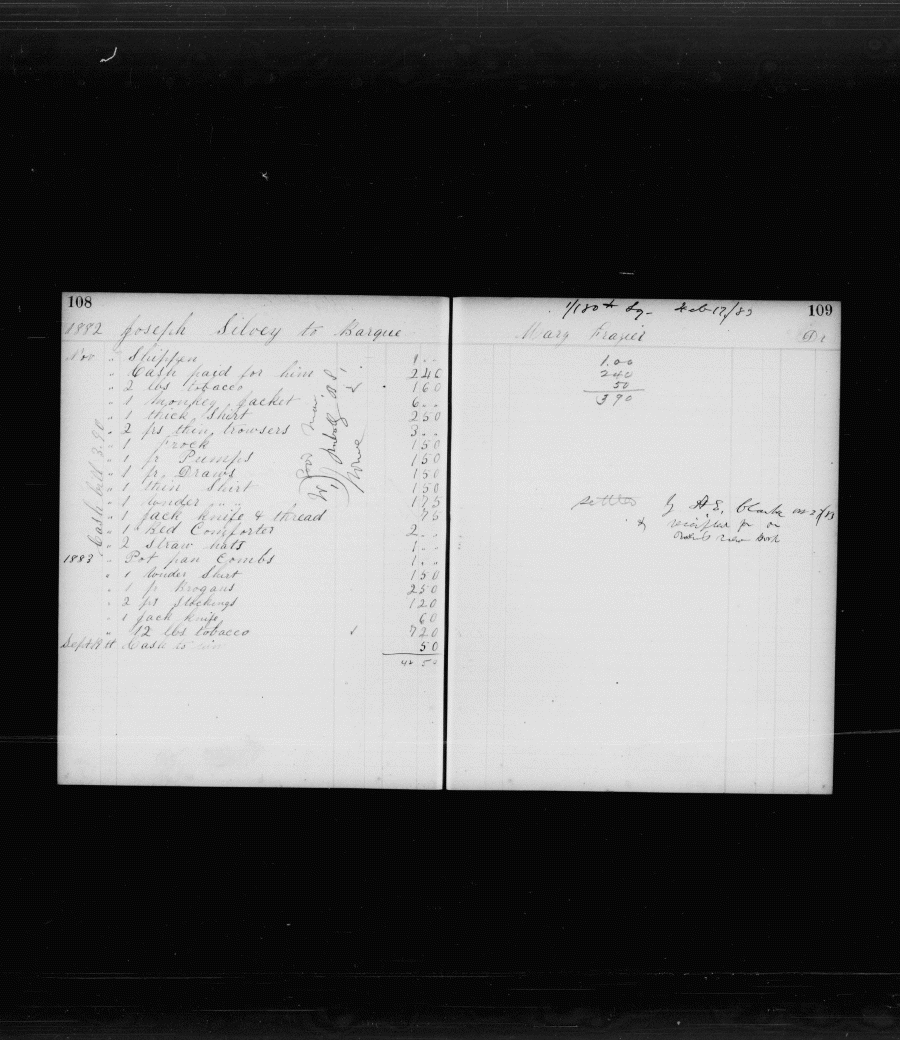 108
1882 Joseph Silvey to Barque
Nov " Shippen 1 . .
" Cash paid for him 240
" 2 lbs tobacco 160
" 1 monkey Jacket 6 . .
" 1 thick Shirt 250
" 2 prs thin trowsers 3 . .
" 1 frock 150
" 1 pr Pumps 150
" 1 pr. Draws 150
" 1 thin Shirt 150
" 1 Wonder " 175
" 1 Jack Knife & thread 75
" 1 Bed Comforter 2 . .
" 2 Straw hats 1 . .
1883 " Pot pan Combs 1 . .
" 1 Wonder Shirt 150
" 1 pr Brogans 250
" 2 prs Stockings 120
" 1 Jack Knife 60
" 12 lbs tobacco 720
Sept Cash to him 50
42 50
Cash bill 3.90
109
1/180th Ly- Feb 17/83
Mary Frazier Dr
1.00
240
50
390
settled by A. E. Clarke
&